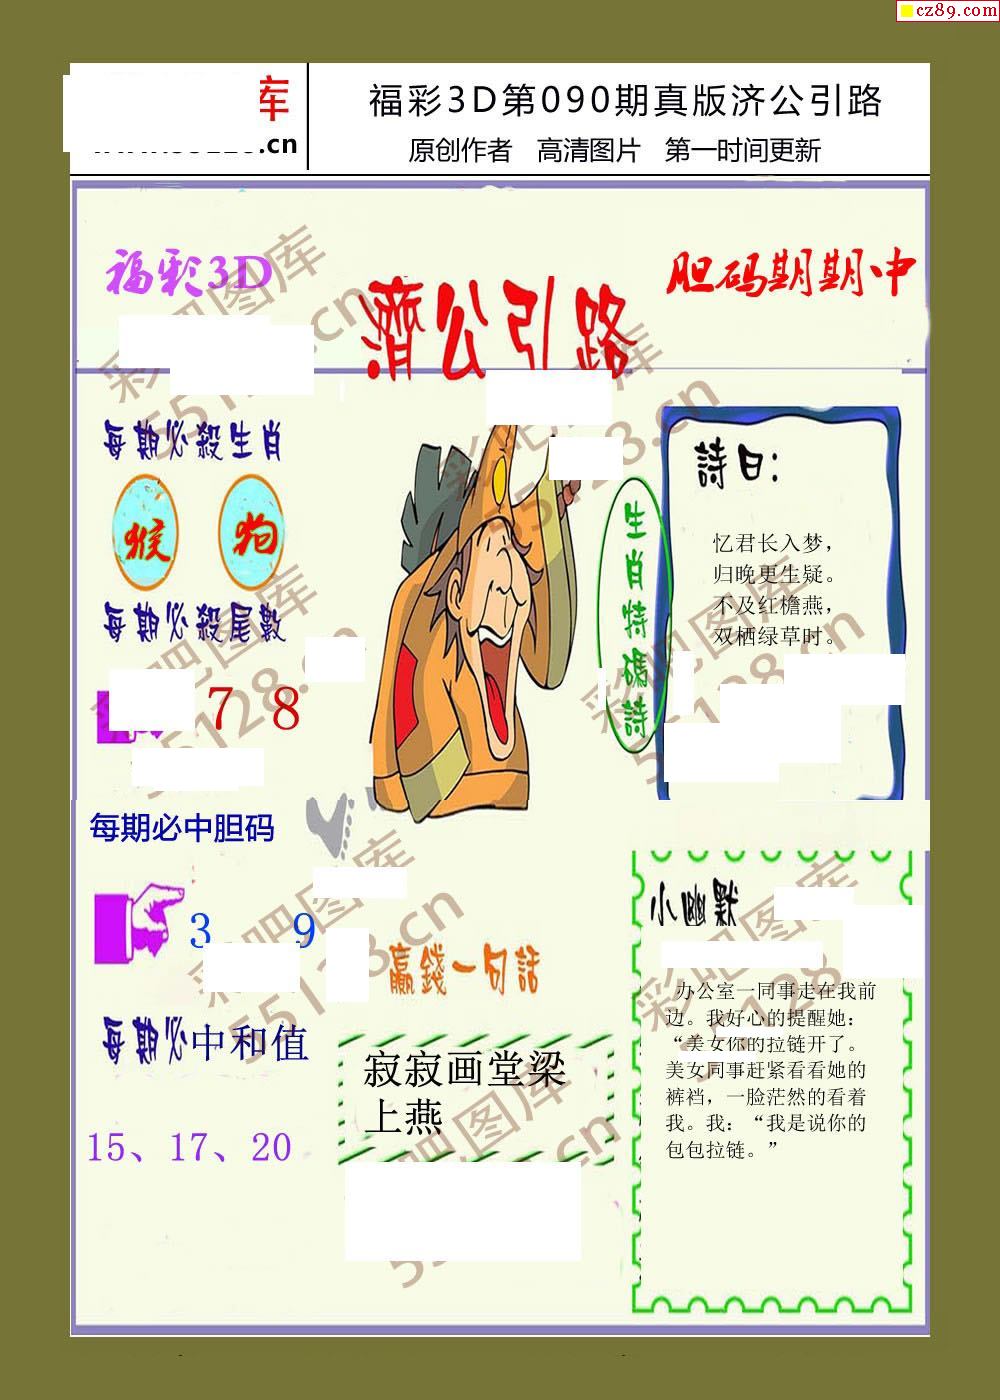 cz89.com
库
.cn
福彩3D第090期真版济公引路
原创作者 高清图片 第一时间更新
福彩3D
濟公引路
胆码期期中
每期必殺生肖
猴 狗
每期必殺尾數
7 8
每期必中胆码
3 9
每期必中和值
15、17、20
生肖特碼詩
詩曰：
忆君长入梦，
归晚更生疑。
不及红檐燕，
双栖绿草时。
赢錢一句話
寂寂画堂梁
上燕
小幽默
办公室一同事走在我前
边。我好心的提醒她：
“美女你的拉链开了。
美女同事赶紧看看她的
裤裆，一脸茫然的看着
我。我：“我是说你的
包包拉链。”
彩吧图库
55128.cn